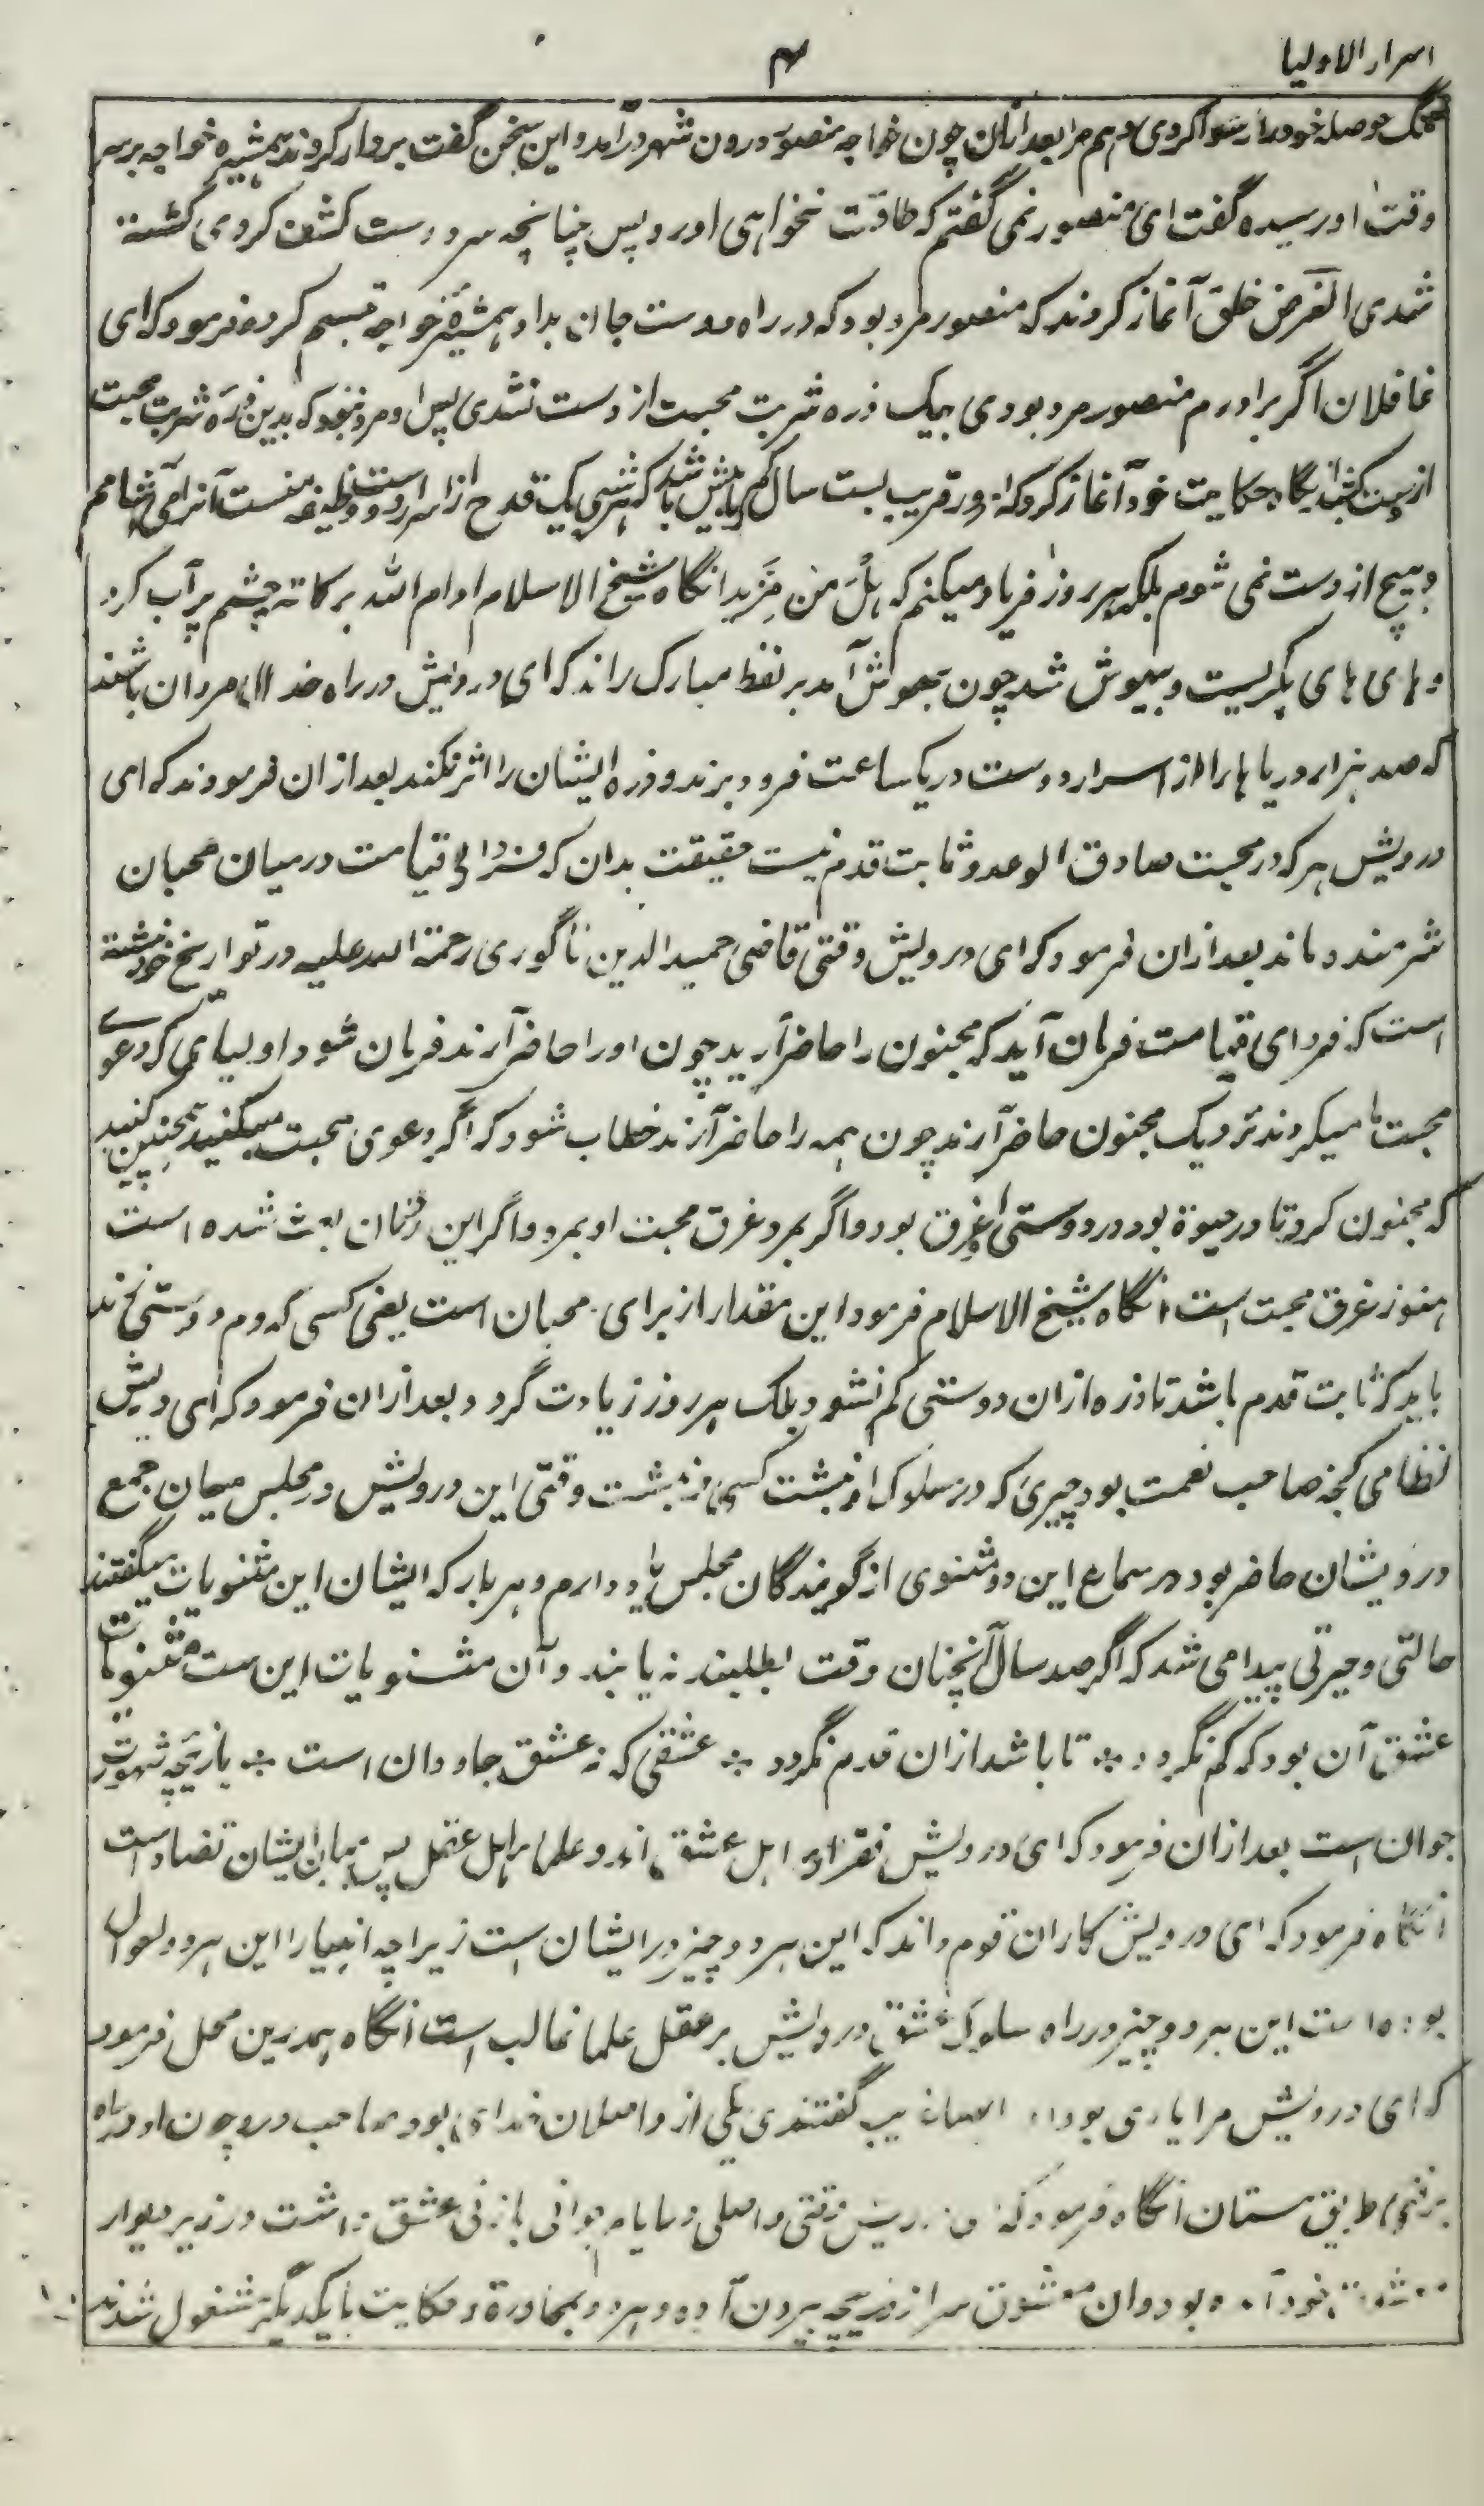 اسرار الاولیا
۴
تنگ حوصله خود را رسوا کردی و هم مرا بعد ازان چون خواجه منصور درون شهر درآمد و این سخن گفت بردار کردند همشیره خواجه بر سر
وقت او رسیده گفت ای منصور نمی گفتم که طاقت نخواهی آورد پس چنانچه سر دوست کشف کردی کشته
شدی الغرض خلق آغاز کردند که منصور مرد بود که در راه دوست جان بداد همشیرهٔ خواجه تبسم کرده فرمود که ای
غافلان اگر برادرم منصور مرد بودی بیک ذره شربت محبت از دست نشدی پس او مرد نبود که بدین ذره شربت محبت
از حکایت خود آغاز کرد که قریب بست سال کم یا بیش باشد که هر شبی یک قدح از اسرار دوست وظیفه منست آنرا می آشامم
و هیچ از دست نمی شوم بلکه هر روز فریاد میکنم که هَلْ مِن مَّزید انگاه شیخ الاسلام ادام الله برکاته چشم پر آب کرد
و های های بگریست و بیهوش شد چون بهوش آمد بر لفظ مبارک راند که ای درویش در راه خدا مردان باشند
که صد هزار دریاها را از اسرار دوست در یک ساعت فرو برند و ذره ایشان را اثر نکند بعد ازان فرمودند که ای
درویش هر که در محبت صادق الوعد و ثابت قدم نیست حقیقت بدان که فردای قیامت درمیان محبان
شرمنده ماند بعد ازان فرمود که ای درویش وقتی قاضی حمید الدین ناگوری رحمة الله علیه در تواریخ خود نبشته
است که فردای قیامت فرمان آید که مجنون را حاضر آرید چون او را حاضر آرند فرمان شود اولیائی که دعوے
محبت ما میکردند نزدیک مجنون حاضر آرند چون همه را حاضر آرند خطاب شود که اگر دعوی محبت میکنید همچنین کنید
که مجنون کرد تا در حیوة بود در دوستی او غرق بود و اگر بمرد غرق محبت او بمرد و اگر این زمان بعث شده است
هنوز غرق محبت است انگاه شیخ الاسلام فرمود این مقدار از برای محبان است یعنی کسی که دم دوستی زند
باید که ثابت قدم باشد تا ذره ازان دوستی کم نشود بلک هر روز زیادت گردد بعد ازان فرمود که ای درویش
نظامی گنجه صاحب نعمت بود چیزی که در سلوک او نبشت کسی ننبشت وقتی این درویش در مجلس میان جمع
درویشان حاضر بود در سماع این دو مثنوی از گویندگان مجلس یاد دارم و هر بار که ایشان این مثنویات میگفتند
حالتی و حیرتی پیدا می شد که اگر صد سال آنچنان وقت بطلبند نه یابند و آن مثنویات این ست مثنویات
عشق آن بود که کم نگردد ÷ تا باشد ازان قدم نگردد ÷ عشقی که نه عشق جاودان است ÷ بازیچهٔ شهوت
جوان است بعد ازان فرمود که ای درویش فقرا اهل عشق اند و علما اهل عقل پس میان ایشان تضاد است
انگاه فرمود که ای درویش کار آن قوم داند که این هر دو چیز در ایشان است زیراچه انبیا را این هر دو احوال
بوده است این هر دو چیز در راه سلوک عشق درویش بر عقل علما غالب است انگاه همدرین محل فرمود
که ای درویش مرا یاری بود گفتندی یکی از واصلان خدای بود صاحب درد چون او در راه
طریق مستان انگاه فرمود که وقتی جوانی با زنی عشق داشت در زیر دیوار
خود آمده بود و آن معشوق سر از دریچه بیرون آورده هر دو بمحاوره و حکایت با یکدیگر مشغول شدند